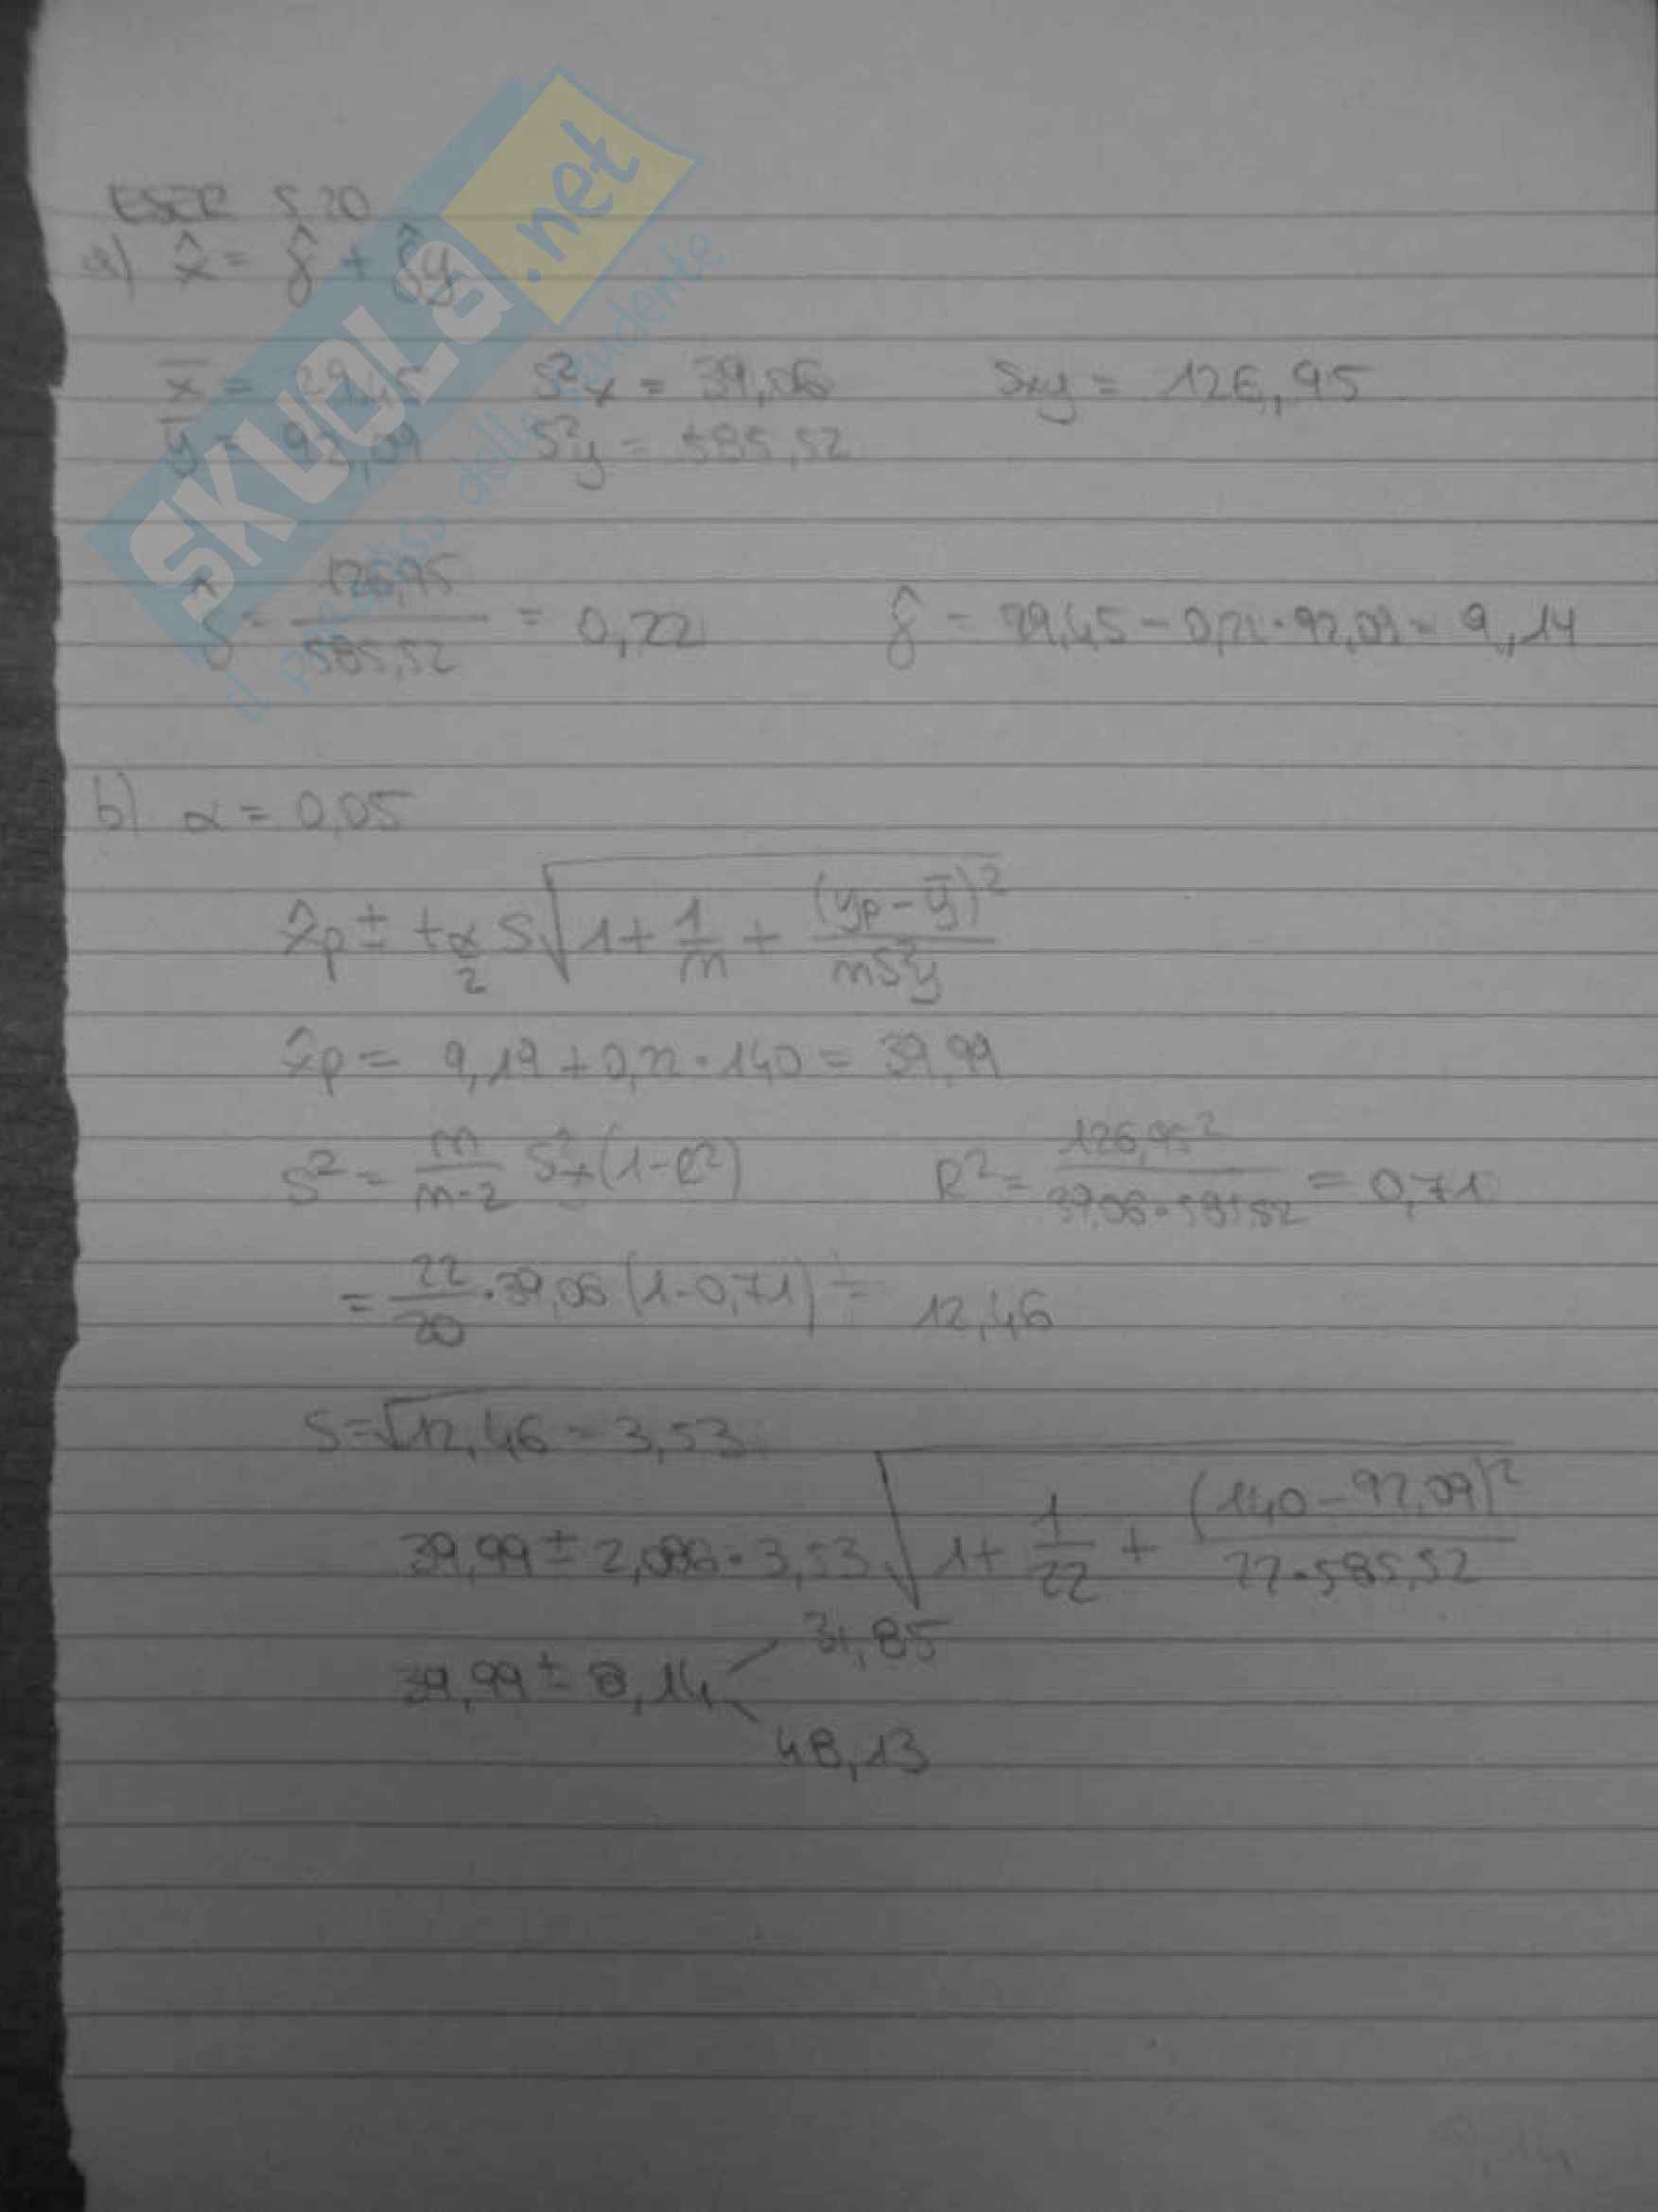 ESER 5.20
a) x̂ = γ̂ + δ̂y
x̄ = 29,45 S²x = 39,06 Sxy = 126,95
ȳ = 92,09 S²y = 585,52
δ̂ = 126,95 / 585,52 = 0,22 γ̂ = 29,45 - 0,22 · 92,09 = 9,14
b) α = 0,05
x̂p ± tα/2 S √(1 + 1/n + (yp - ȳ)² / nS²y)
x̂p = 9,19 + 0,22 · 140 = 39,99
S² = n/n-2 S²x (1 - R²) R² = 126,95² / 39,06 · 585,52 = 0,71
= 22/20 · 39,06 (1 - 0,71) = 12,46
S = √12,46 = 3,53
39,99 ± 2,086 · 3,53 √(1 + 1/22 + (140 - 92,09)² / 22 · 585,52)
39,99 ± 8,14 31,85
48,13
SKUOLA.net